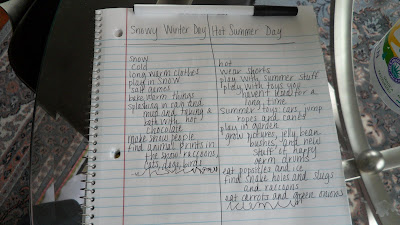 Snowy Winter Day
snow
cold
long warm clothes
play in snow
salt games
bake warm things
splashing in rain and
mud and taking a
bath with hot
chocolate
make snow people
find animal prints in
the snow, raccoons,
cats, dogs, birds
Hot Summer Day
hot
wear shorts
play with summer stuff
play with toys you
haven't used for a
long time
Summer toys: cars, jump
ropes and
play in garden
grow pictures, jelly bean
bushes, and new
stuff i.e. happy
germ drums
eat popsicles and ice
find snake holes and slugs
and raccoons
eat carrots and green onions